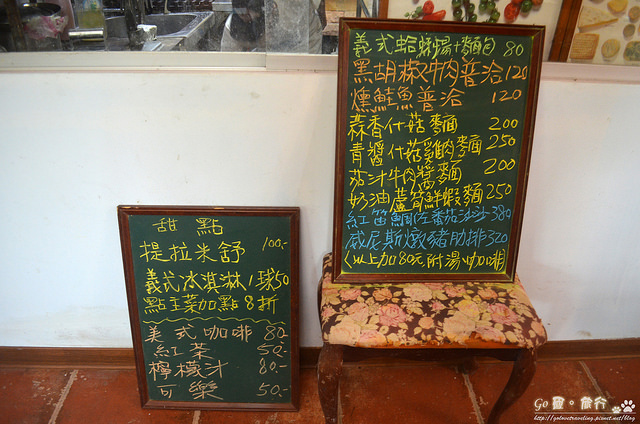 甜點
提拉米舒 100.-
義式冰淇淋1球50
點主菜加點8折
美式咖啡 80.-
紅茶 50.-
檸檬汁 80.-
可樂 50.-
義式蛤蜊湯+麵包 80
黑胡椒牛肉普洽 120
燻鮭魚普洽 120
蒜香什菇麵 200
青醬什菇雞肉麵 250
茄汁牛肉醬麵 200
奶油蘆筍鮮蝦麵 250
紅笛鯛佐番茄沙沙 380
威尼斯燉豬肋排 320
(以上加80元附湯.咖啡)
Go 旅行